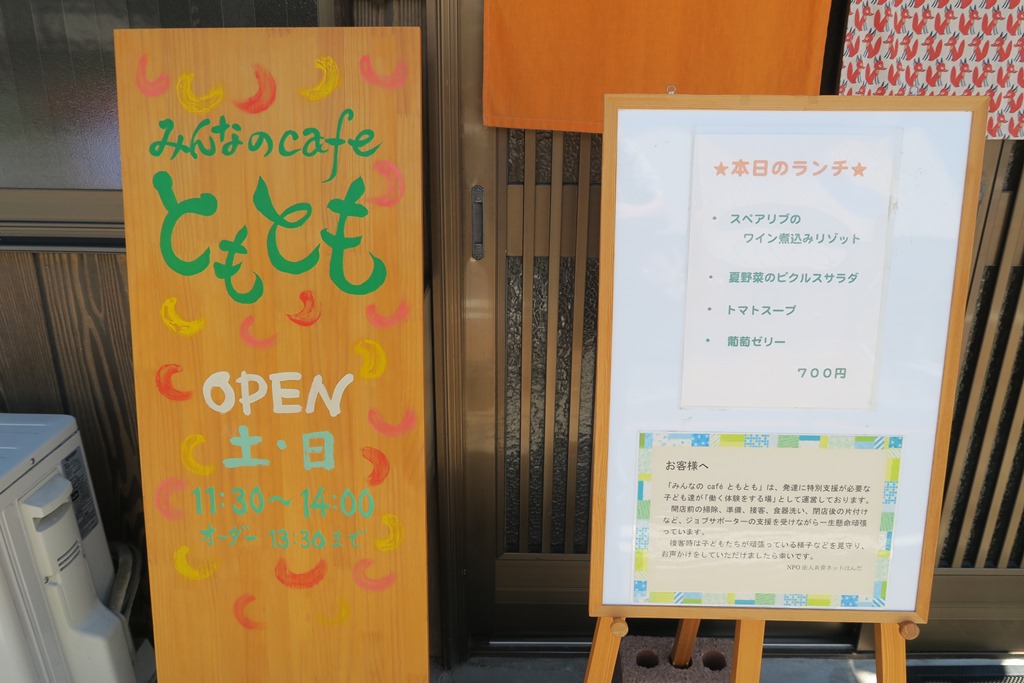 みんなのcafe
ともとも
OPEN
土・日
11:30〜14:00
オーダー 13:30まで
★本日のランチ★
・ スペアリブの
ワイン煮込みリゾット
・ 夏野菜のピクルスサラダ
・ トマトスープ
・ 葡萄ゼリー
700円
お客様へ
「みんなの café ともとも」は、発達に特別支援が必要な
子ども達が「働く体験をする場」として運営しております。
開店前の掃除、準備、接客、食器洗い、閉店後の片付け
など、ジョブサポーターの支援を受けながら一生懸命頑張
っています。
接客時は子どもたちが頑張っている様子などを見守り、
お声かけをしていただけましたら幸いです。
NPO法人共育ネットはんだ